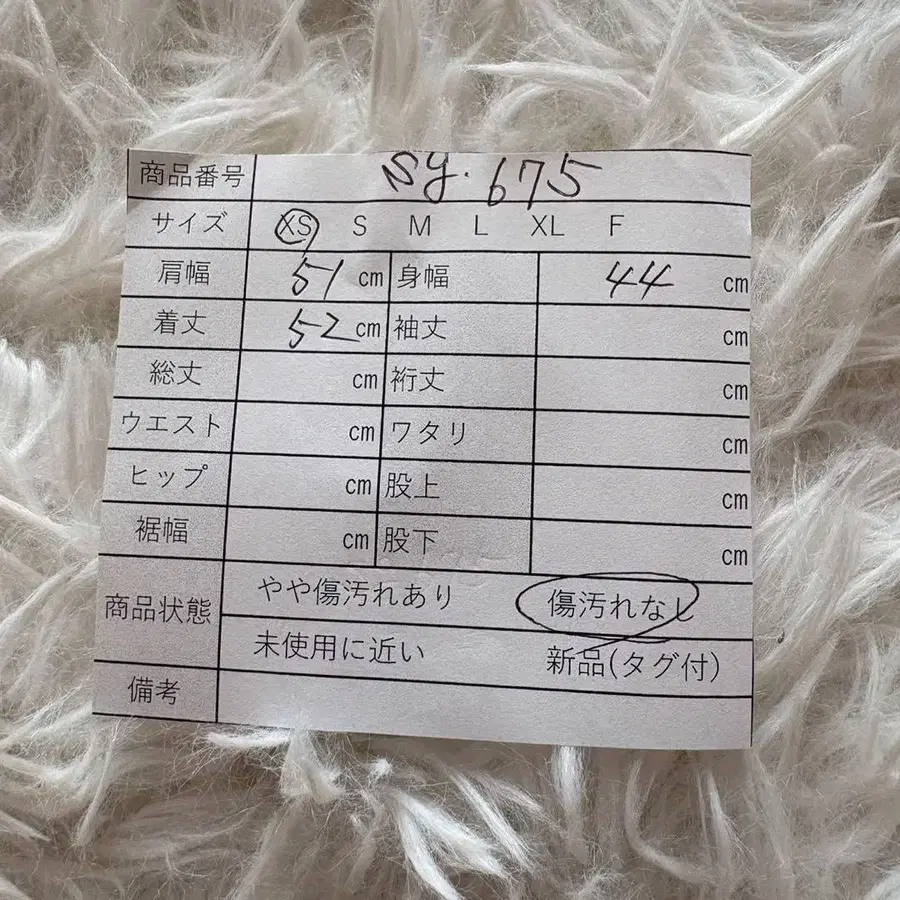 商品番号 sy.675
サイズ XS S M L XL F
肩幅 51 cm 身幅 44 cm
着丈 52 cm 袖丈 cm
総丈 cm 裄丈 cm
ウエスト cm ワタリ cm
ヒップ cm 股上 cm
裾幅 cm 股下 cm
商品状態 やや傷汚れあり 傷汚れなし
未使用に近い 新品(タグ付)
備考